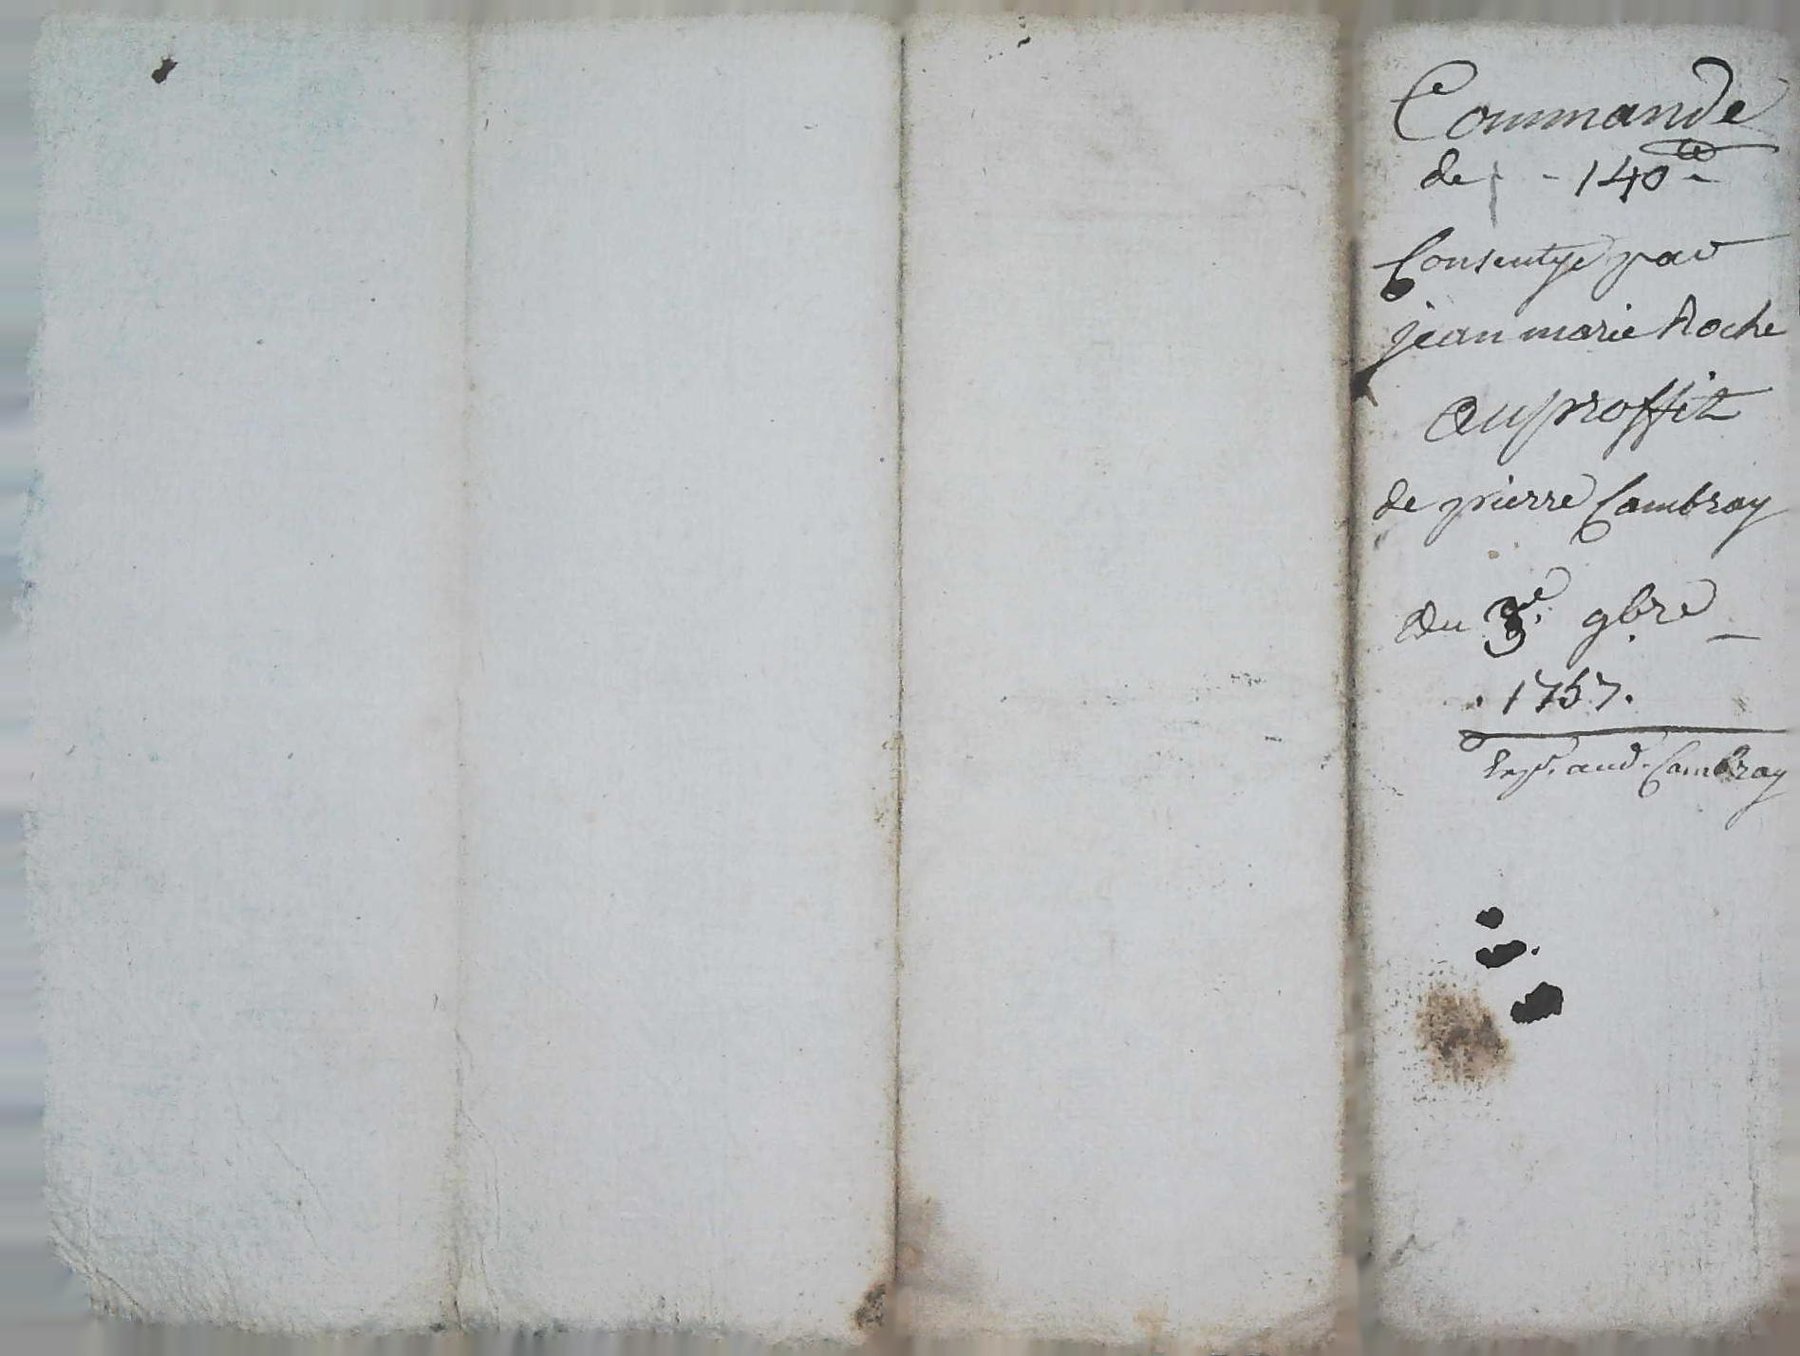 Commande
de - 140 ₶ -
Consentye par
jean marie Roche
au proffit
de pierre Cambray
Du 3e. 9bre
. 1757.
and. Cambray